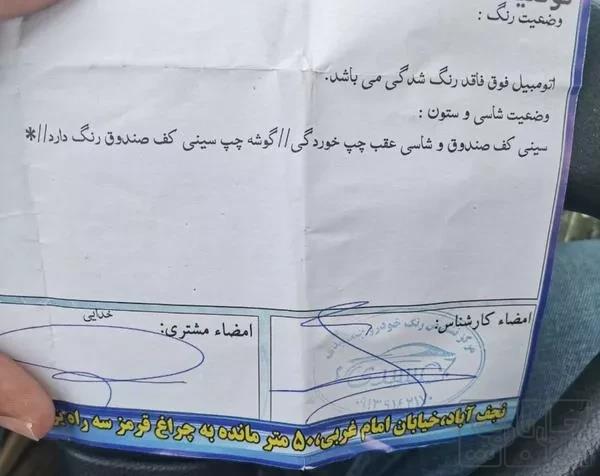 وضعیت رنگ :
اتومبیل فوق فاقد رنگ شدگی می باشد.
وضعیت شاسی و ستون :
سینی کف صندوق و شاسی عقب چپ خوردگی//گوشه چپ سینی کف صندوق رنگ دارد//*
امضاء کارشناس:
خدایی
امضاء مشتری:
نجف آباد،خیابان امام غربی،۵۰ متر مانده به چراغ قرمز سه راه